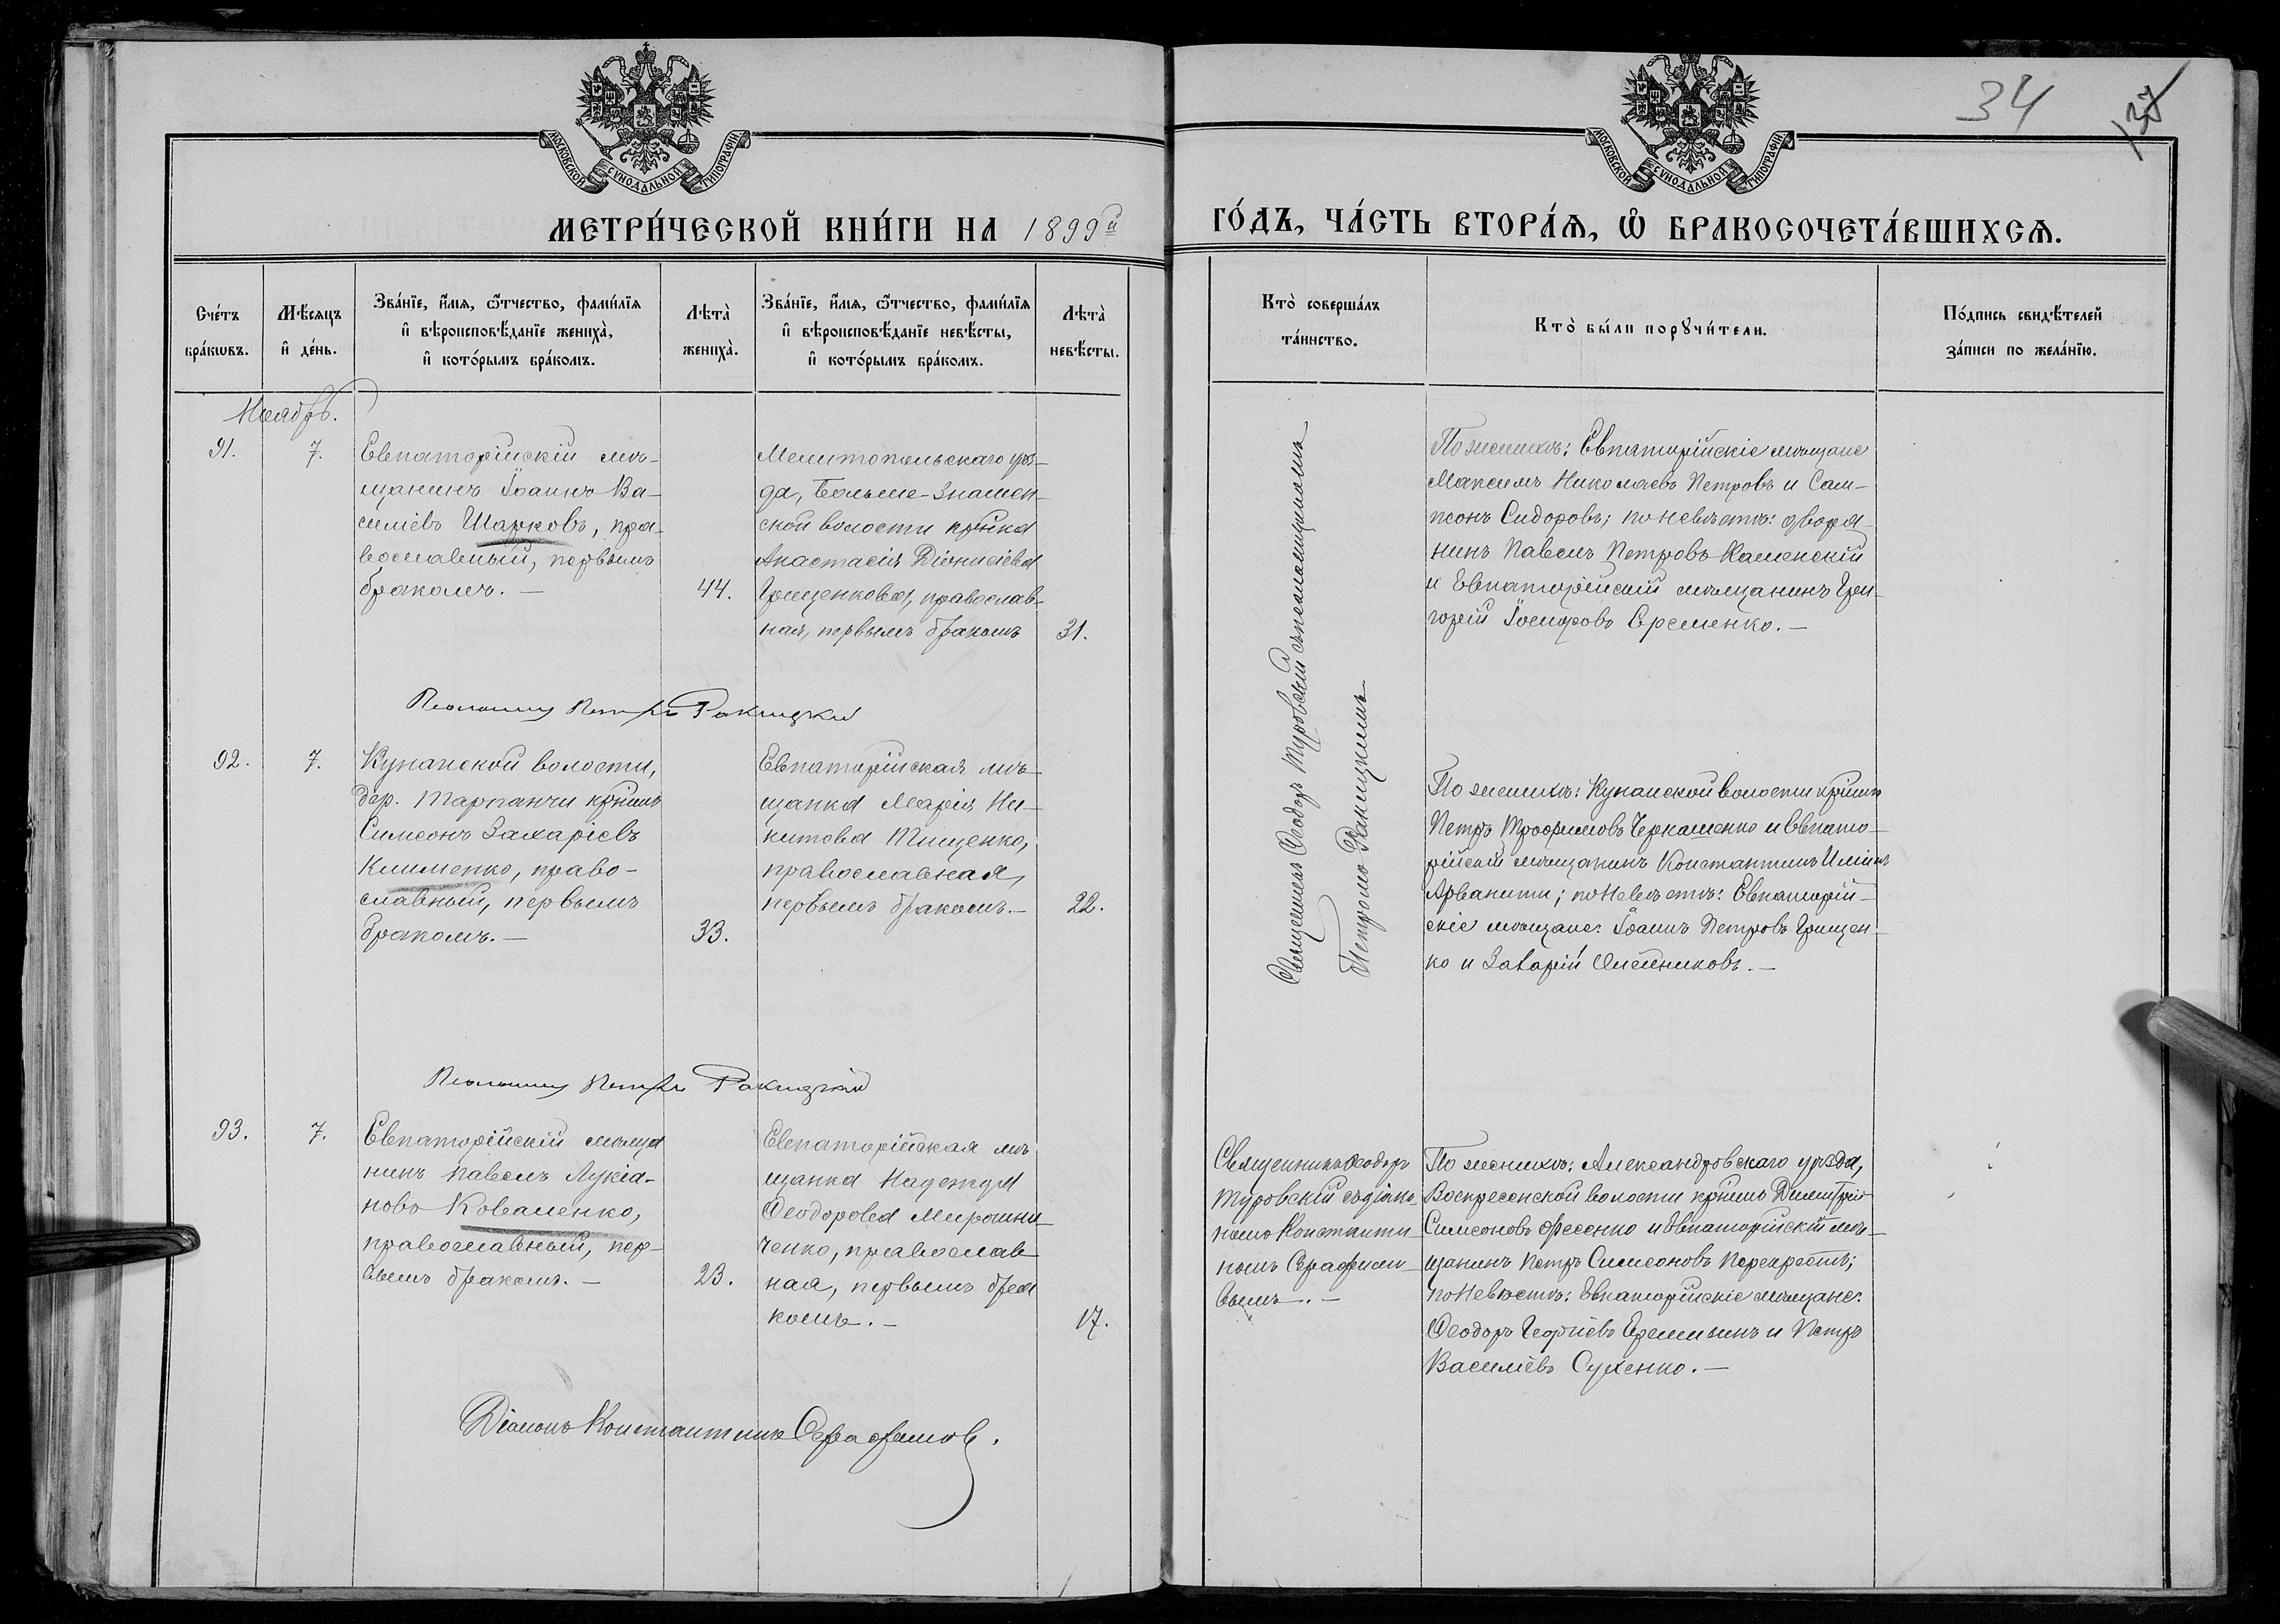 34
137
МОСКОВСКОЙ СѴНОДАЛЬНОЙ ТИПОГРАФІИ
МОСКОВСКОЙ СѴНОДАЛЬНОЙ ТИПОГРАФІИ
МЕТРИ́ЧЕСКОЙ КНИ́ГИ НА 1899й
ГО́ДЪ, ЧА́СТЬ ВТОРА́Ѧ, Ѽ БРАКОСОЧЕТА́ВШИХСѦ.
Сче́тъ
бра́кѡвъ.
Мѣ́сяцъ
и҆ де́нь.
Зва́нїе, и҆́мя, ѻ҆́тчество, фами́лїя
и҆ вѣроисповѣ́данїе жениха̀,
и҆ кото́рымъ бра́комъ.
Лѣта̀
жениха̀.
Зва́нїе, и҆́мя, ѻ҆́тчество, фами́лїя
и҆ вѣроисповѣ́данїе невѣ́сты,
и҆ кото́рымъ бра́комъ.
Лѣта̀
невѣ́сты.
Кто̀ соверша́лъ
та́инство.
Кто̀ бы́ли порꙋчи́тели.
По́дпись свидѣ́телей
за́писи по жела́нїю.
Ноябрь.
91.
7.
Евпаторійскій мѣ-
щанинъ Іоаннъ Ва-
силіевъ Шарковъ, пра-
вославный, первымъ
бракомъ. —
44.
Мелитопольскаго уѣз-
да, Больше-Знамен-
ской волости кр-нка
Анастасія Діонисіева
Грищенкова, православ-
ная, первымъ бракомъ
31.
Священникъ Ѳеодоръ Туровскій съ псаломщикомъ
Петромъ Ракицкимъ
По женихѣ: Евпаторійскіе мѣщане
Максимъ Николаевъ Петровъ и Сам-
псонъ Сидоровъ; по невѣстѣ: дворя-
нинъ Павелъ Петровъ Каменскій
и Евпаторійскій мѣщанинъ Гри-
горій Іосифовъ Еременко. —
Псаломщ Петръ Ракицкій
92.
7.
Кунанской волости,
дер. Тарпанчи кр-нинъ
Симеонъ Захаріевъ
Клименко, право-
славный, первымъ
бракомъ. —
33.
Евпаторійская мѣ-
щанка Марія Ни-
китова Тищенко,
православная,
первымъ бракомъ. —
22.
По женихѣ: Кунанской волости кр-нинъ
Петръ Трофимовъ Черкашенко и Евпато-
рійскій мѣщанинъ Константинъ Ильинъ
Арванити; по невѣстѣ: Евпаторій-
скіе мѣщане: Іоаннъ Петровъ Грищен-
ко и Захарій Олейниковъ. —
Псаломщ Петръ Ракицкій
93.
7.
Евпаторійскій мѣща
нинъ Павелъ Лукіа-
новъ Коваленко,
православный, пер-
вымъ бракомъ. —
23.
Евпаторійская мѣ
щанка Надежда
Ѳеодорова Мирошни-
ченко, православ-
ная, первымъ бра
комъ. —
17.
Священникъ Ѳеодоръ
Туровскій съ діако-
номъ Константи-
номъ Серафимо-
вымъ. —
По женихѣ: Александровскаго уѣзда,
Воскресенской волости кр-нинъ Димитрій
Симеоновъ Фесенко и Евпаторійскій мѣ-
щанинъ Петръ Симеоновъ Перекрестъ;
по невѣстѣ: Евпаторійскіе мѣщане:
Ѳеодоръ Георгіевъ и Петръ
Василіевъ Сухенко. —
Діаконъ Константинъ Серафимовъ.